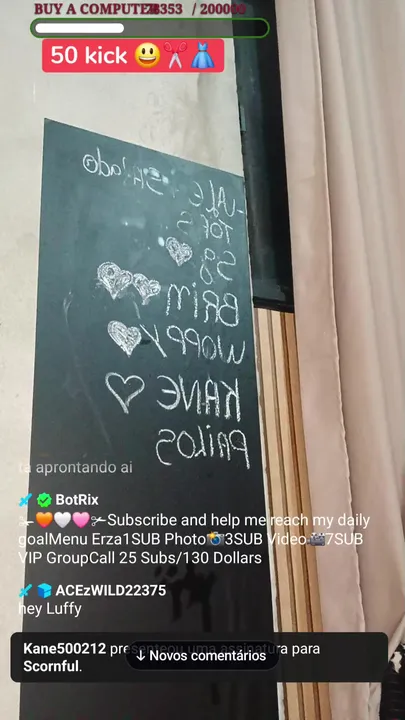 BUY A COMPUTER 78353 / 200000
50 kick 😃✂️👗
JALE
TOF
SG
BRIM
WOPPY
KANE
PAILOS
ta aprontando ai
BotRix
✂🧡🤍🩷✂Subscribe and help me reach my daily
goalMenu Erza1SUB Photo📸3SUB Video🎥7SUB
VIP GroupCall 25 Subs/130 Dollars
ACEzWILD22375
hey Luffy
Kane500212 presenteou uma assinatura para
Scornful.
↓ Novos comentários